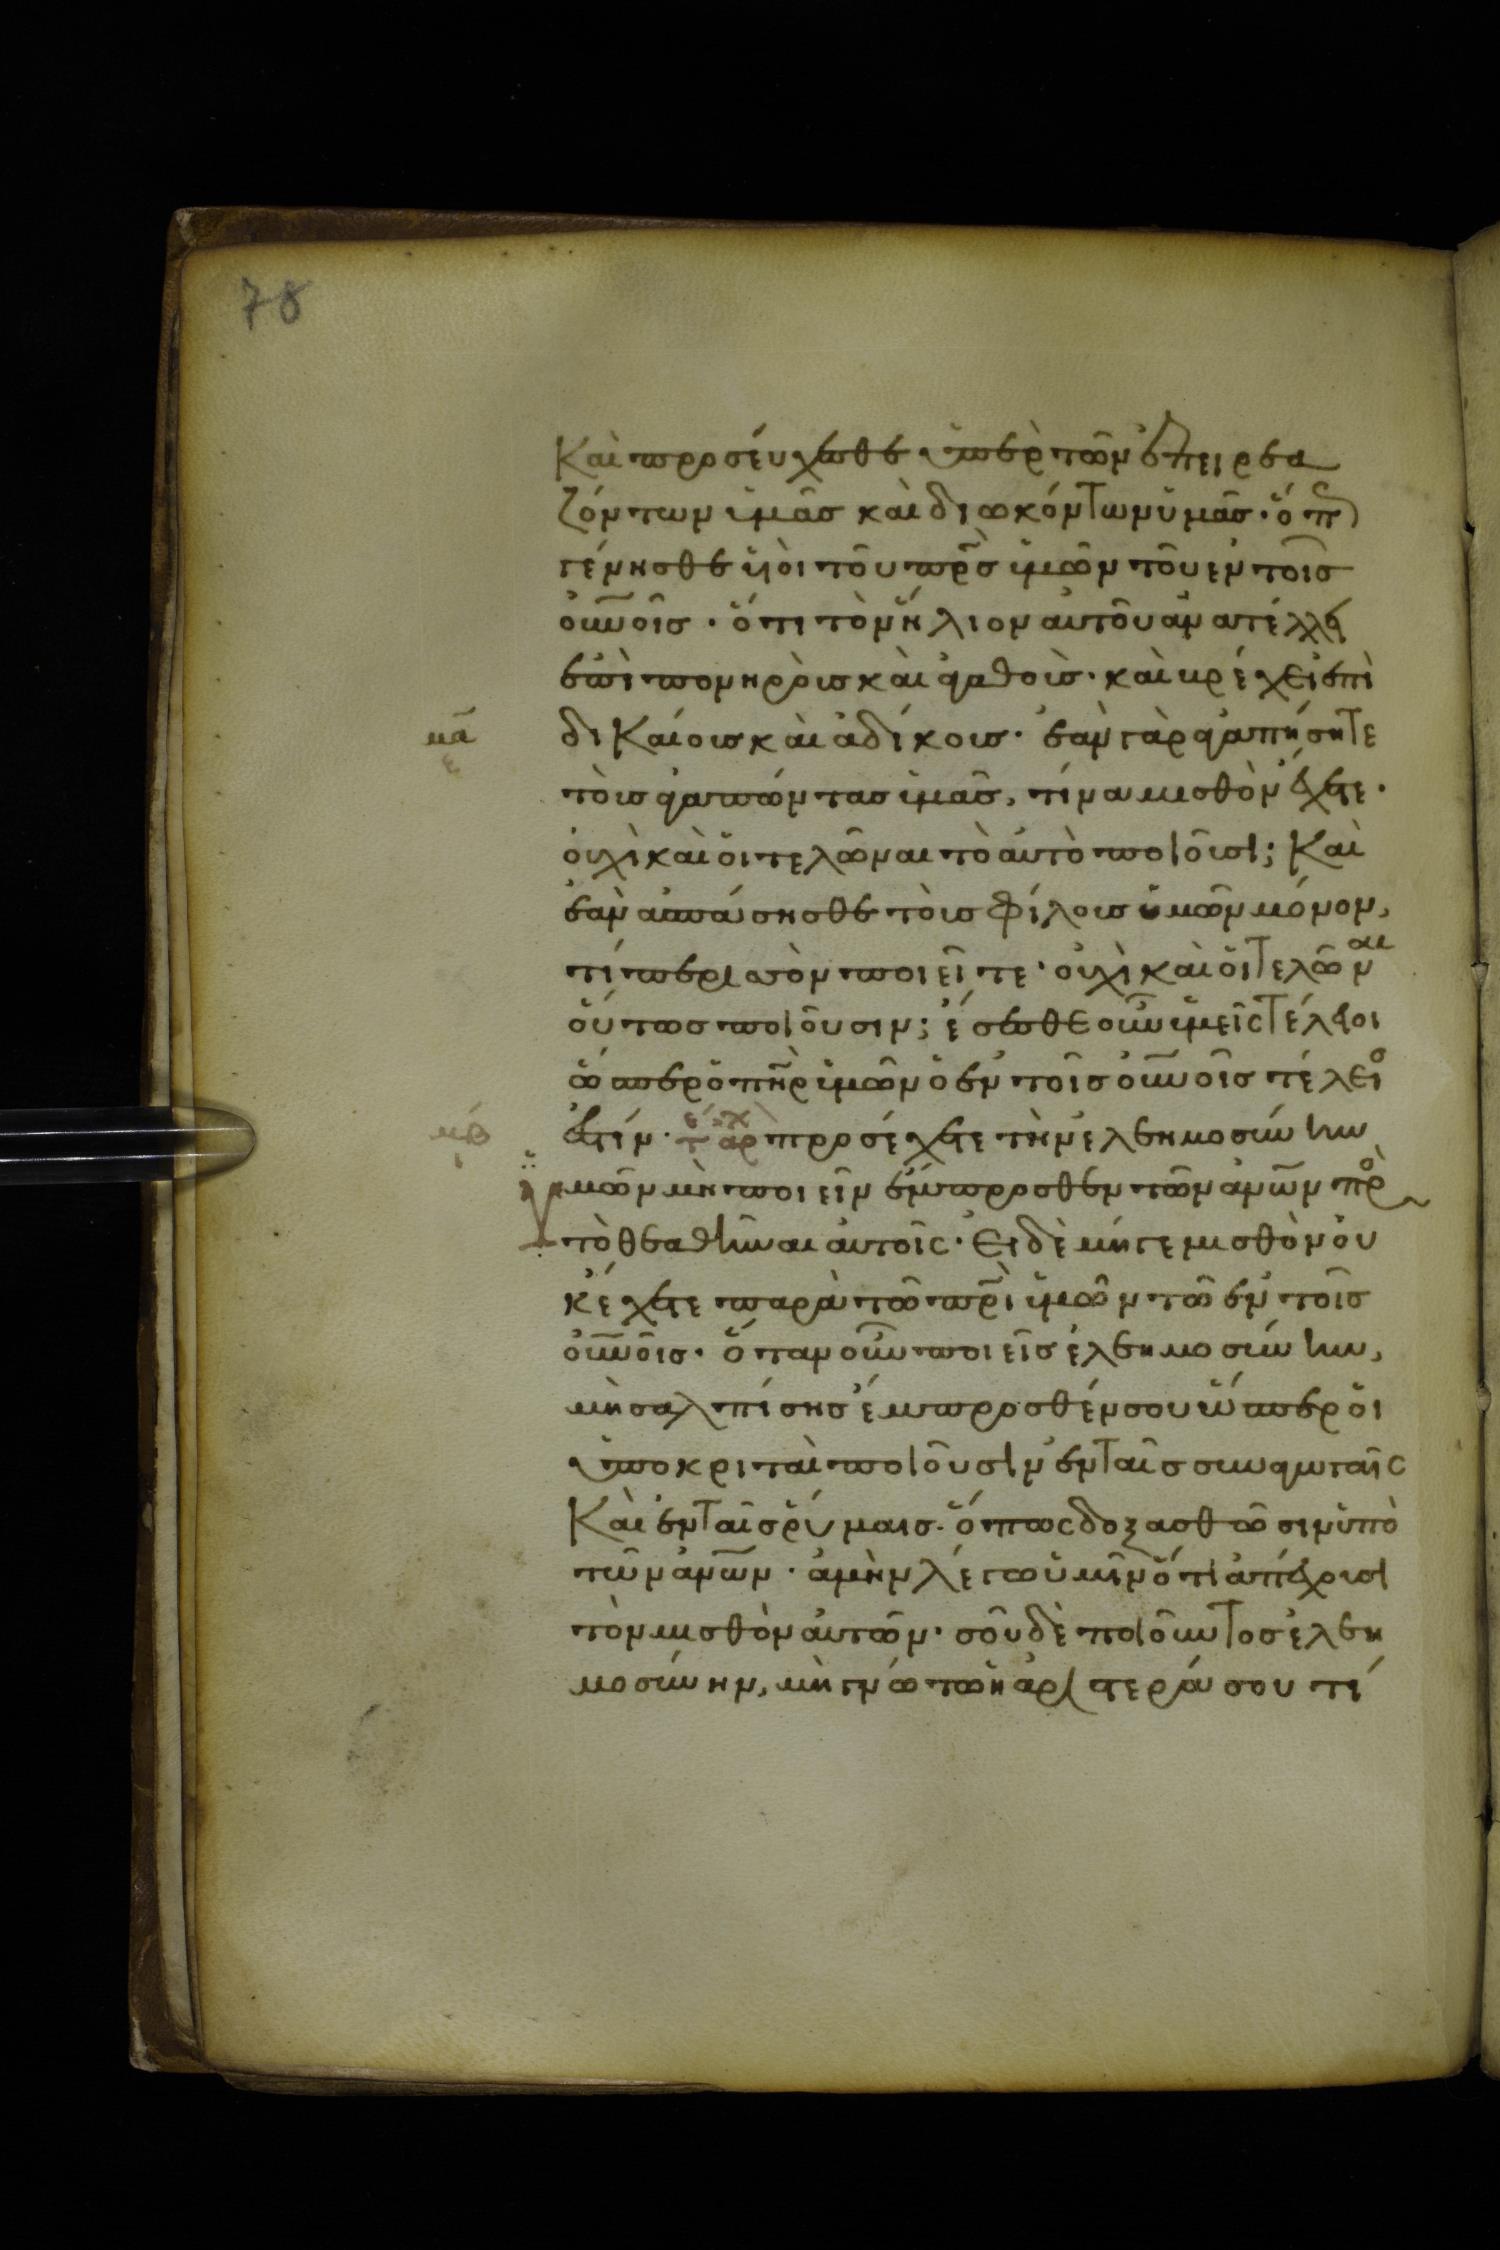 78
Καὶ προσέυχεσθε ὑπὲρ τῶν ἐπειρεα
ζόντων ὑμᾶσ καὶ διωκόντων ὑμᾶσ· ὅπ
γένησθε ὑϊὸι τοῦ πρ̅σ ὑμῶν τοῦ ἐν τοῖσ
οὐν̅οῖσ· ὅτι τὸν ἥλιον αὐτοῦ ἀνατέλλει
ἐπὶ πονηρὸυσ κὰι ἀγαθοὺσ· κὰι βρέχει ἐπὶ
μα̅ δικαίουσ κὰι ἀδίκουσ· ἐὰν γὰρ ἀγαπήσητε
ε
τὸυσ ἀγαπῶντασ ὑμᾶσ, τίνα μισθὸν ἔχετε·
οὐχὶ καὶ ὅι τελῶναι τὸ ἀυτὸ ποιοῦσι; Καὶ
ἐὰν ἀσπάσησθε τὸυσ φίλουσ ὑμῶν μόνον,
τί περισσὸν ποιεῖτε· οὐχὶ κὰι ὅι τελῶναι
ὅυτωσ ποιοῦσιν; ἔσεσθε οὖν ὑμεῖς τέλειοι
ὥσπερ ὁ πη̅ρ ὑμῶν ὁ ἐν τοῖσ οὐν̅οῖσ τέλειο
μβ ἐστίν· προσέχετε τὴν ἐλεημοσύνην
ι
ὑμῶν μὴ ποιεῖν ἔμπροσθεν τῶν ἀν̅ων πρὸ
τὸ θεαθῆναι ἀυτοῖς· Ἐι δὲ μήγε μισθὸν ὀυ
κ ἔχετε παρὰ τῶ πρ̅ὶ ὑμῶν τῶ ἐν τοῖσ
οὐν̅οῖσ· Ὅταν οὖν ποιεῖσ ἐλεημοσύνην,
μὴ σαλπίσησ ἔμπροσθέν σου ὥσπερ ὅι
ὑποκριταὶ ποιοῦσιν ἐν ταῖσ συναγωγαῖς
Κὰι ἐν ταῖσ ῥύμαισ· ὅπως δοξασθῶσιν ὑπὸ
τῶν ἀν̅ων· ἀμὴν λέγω ὑμῖν ὅτι ἀπέχουσι
τὸν μισθὸν ἀυτῶν· σοῦ δὲ ποιοῦντοσ ἐλεη
μοσύνην, μὴ γνώτω ἡ ἀριστερά σου τί